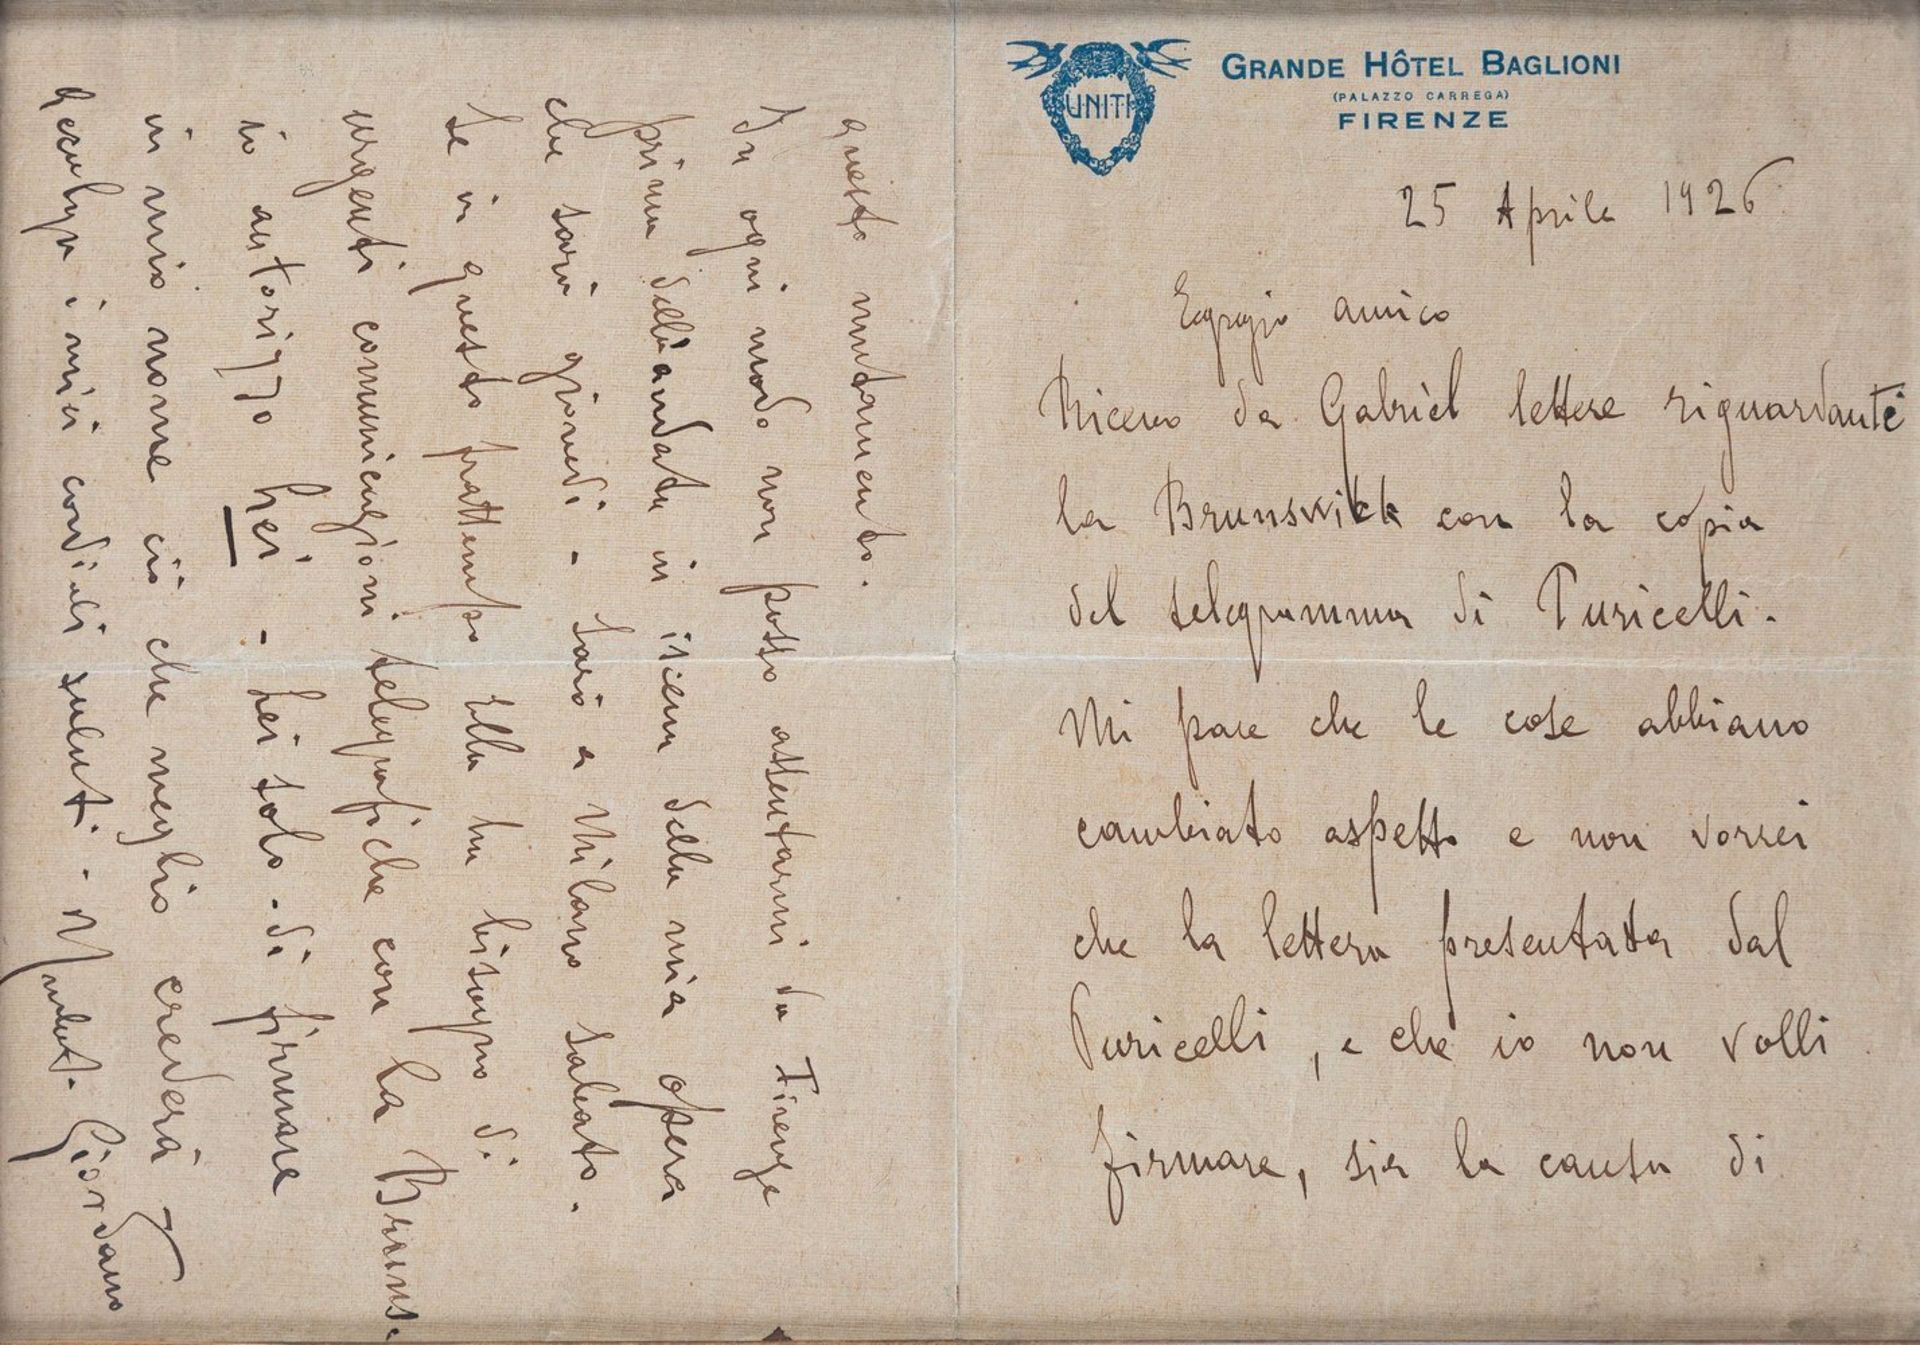 UNITI
GRANDE HÔTEL BAGLIONI
(PALAZZO CARREGA)
FIRENZE
25 Aprile 1926
Egregio amico
Ricevo da Gabriel lettere riguardante
la Brunswick con la copia
del telegramma di Puricelli.
Mi pare che le cose abbiano
cambiato aspetto e non vorrei
che la lettera presentata dal
Puricelli, e che io non volli
firmare, sia la causa di
questo mutamento.
In ogni modo non posso assentarmi da Firenze
prima dell'andata in iscena della mia opera
che sarà giovedì - Sarò a Milano sabato.
Se in questo frattempo Ella ha bisogno di
urgenti comunicazioni telegrafiche con la Bruns.
io autorizzo Lei - Lei solo - di firmare
in mio nome ciò che meglio crederà
Accolga i miei cordiali saluti. - Umbt. Giordano